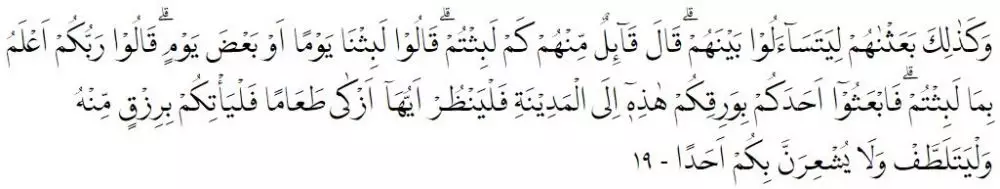 وَكَذٰلِكَ بَعَثْنٰهُمْ لِيَتَسَاۤءَلُوْا بَيْنَهُمْۗ قَالَ قَاۤىِٕلٌ مِّنْهُمْ كَمْ لَبِثْتُمْۗ قَالُوْا لَبِثْنَا يَوْمًا اَوْ بَعْضَ يَوْمٍۗ قَالُوْا رَبُّكُمْ اَعْلَمُ
بِمَا لَبِثْتُمْۗ فَابْعَثُوْٓا اَحَدَكُمْ بِوَرِقِكُمْ هٰذِهٖٓ اِلَى الْمَدِيْنَةِ فَلْيَنْظُرْ اَيُّهَآ اَزْكٰى طَعَامًا فَلْيَأْتِكُمْ بِرِزْقٍ مِّنْهُ
وَلْيَتَلَطَّفْ وَلَا يُشْعِرَنَّ بِكُمْ اَحَدًا - ١٩